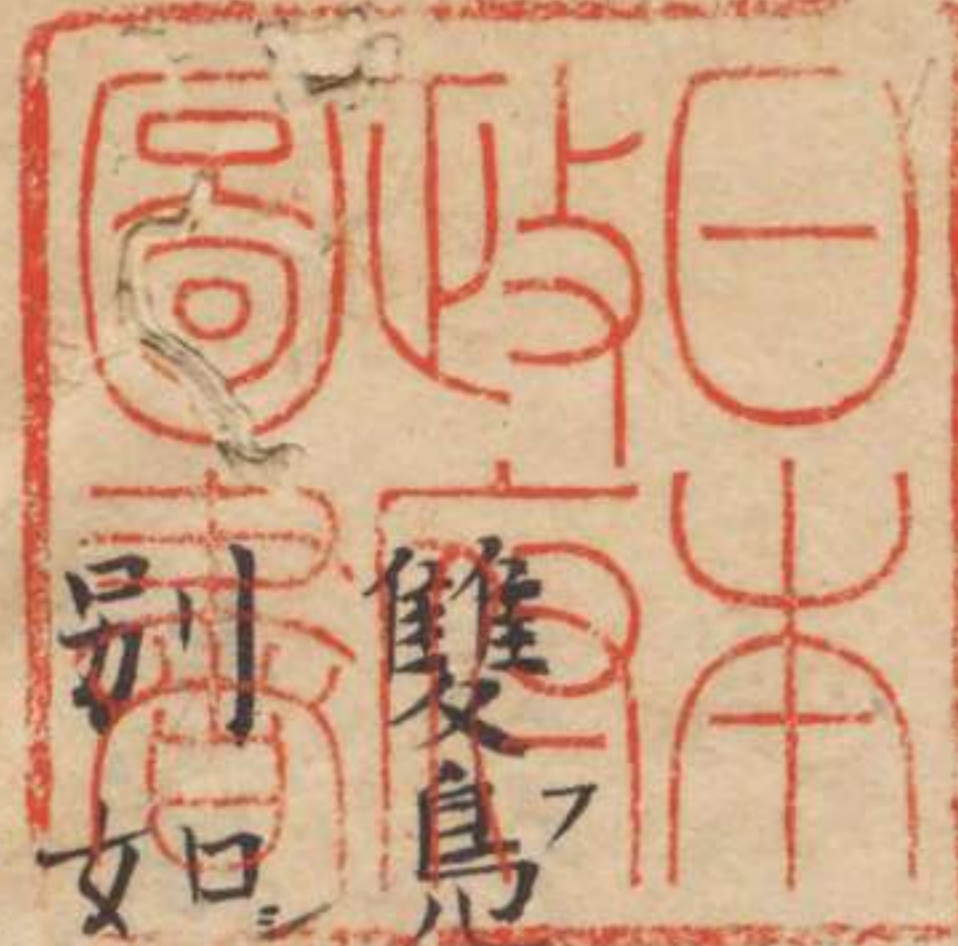 日本
政府
圖書
雙鳬フ
別如シ